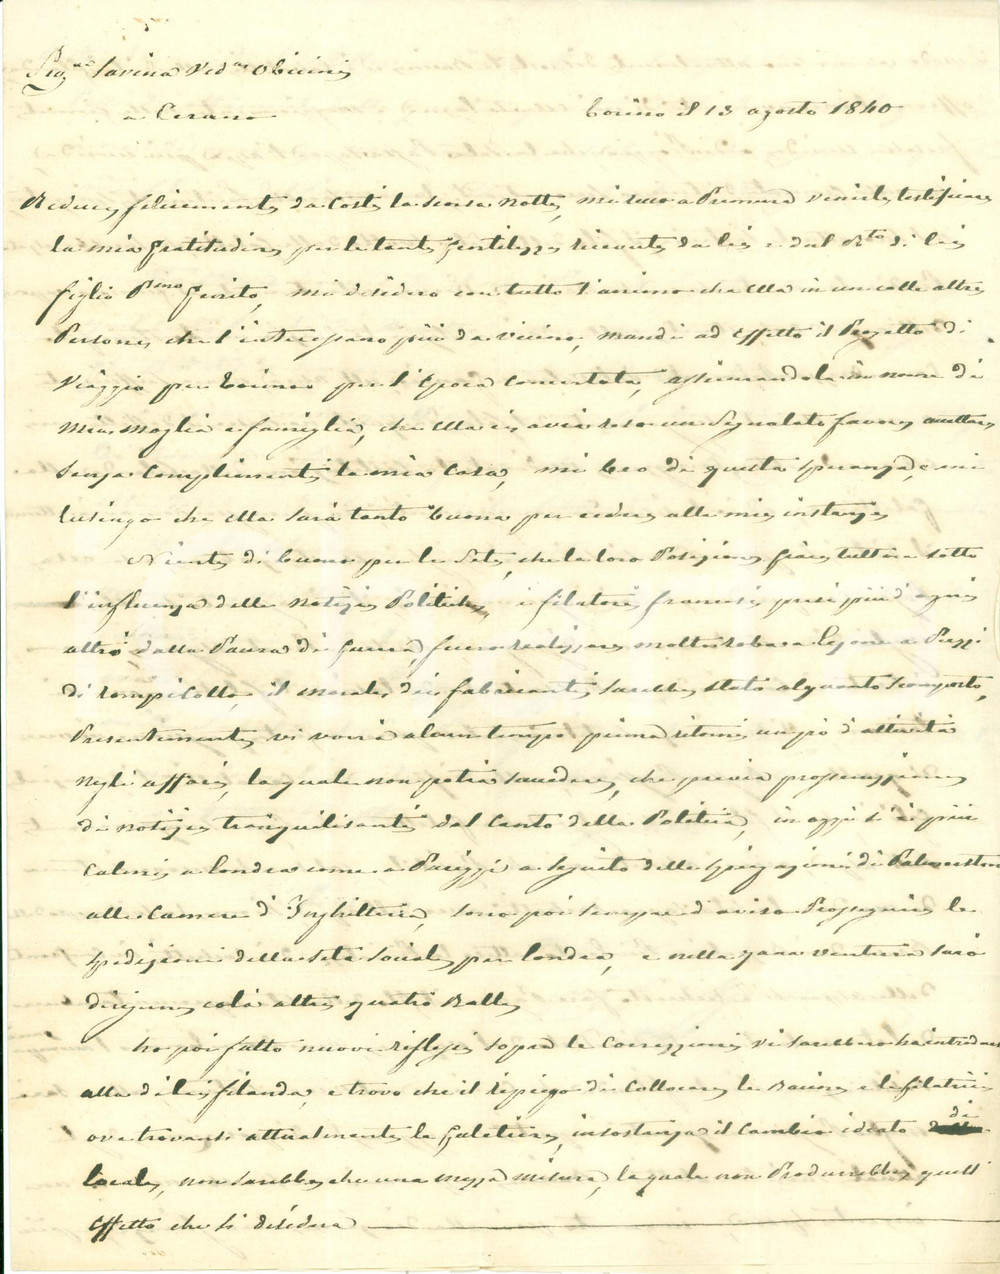 Sig.ra Savina Ved.a Obicini
a Cerano
Torino il 13 agosto 1840
Reduce felicemente da costì la scorsa notte, mi reco a Premura venirle testificare
la mia gratitudine per le tante gentilezze ricevute da lei e dal di lei
figlio P.mo, mi desidero con tutto l'animo che Ella in un colle altre
Persone che l'interessano più da vicino, mandi ad Effetto il Progetto di
Viaggio per Torino per l'Epoca Concertata, assicurandola in nome di
mia moglie e famiglia, che Ella ci avrà reso un Segnalato favore
Senza Complimenti la mia Casa, mi beo di questa speranza, e mi
lusingo che Ella sarà tanto buona per cedere alle mie instanze
Niente di buono per le Sete, che la loro Posizione giace tuttora sotto
l'influenza delle notizie Politiche, i filatori francesi presi più d'ogni
altro dalla Paura di Guerra, fecero realizzare molta roba a Lione a Prezzi
di rompicollo, il morale dei fabricanti sarebbe stato alquanto scomposto,
Presentemente vi vorrà alcun tempo prima ritorni un pò d'attività
negli affari, la quale non potrà succedere, che previa prosecuzione
di notizie tranquilisanti dal Canto della Politica, in oggi si è più
calmi a Londra come a Pariggi a seguito delle spiegazioni di Palmerston
alle Camere d'Inghilterra, sono poi sempre d'aviso Proseguire le
spedizioni della seta sociale per Londra, e nella ventura sarò
dirigere colà altre quatro Balle
ho poi fatto nuovi riflessi sopra le Correzzioni vi sarebbero
alla di lei filanda, e trovo che il ripiego di Collocare le Bacine e le filatrici
ove trovansi attualmente le Galetiere, in sostanza il Cambio ideato di
locale, non sarebbe che una mezza misura, la quale non Produrrebbe quell'
Effetto che si desidera